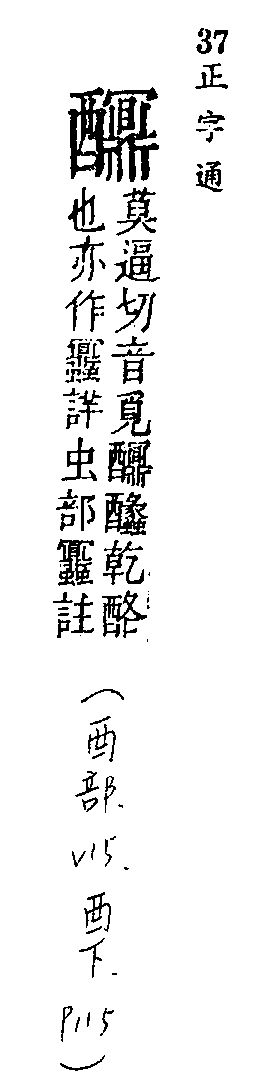 37
正字通
莫逼切音覓乾酪
也亦作蠠詳虫部蠠註
(酉部. V15. 酉下. P115)